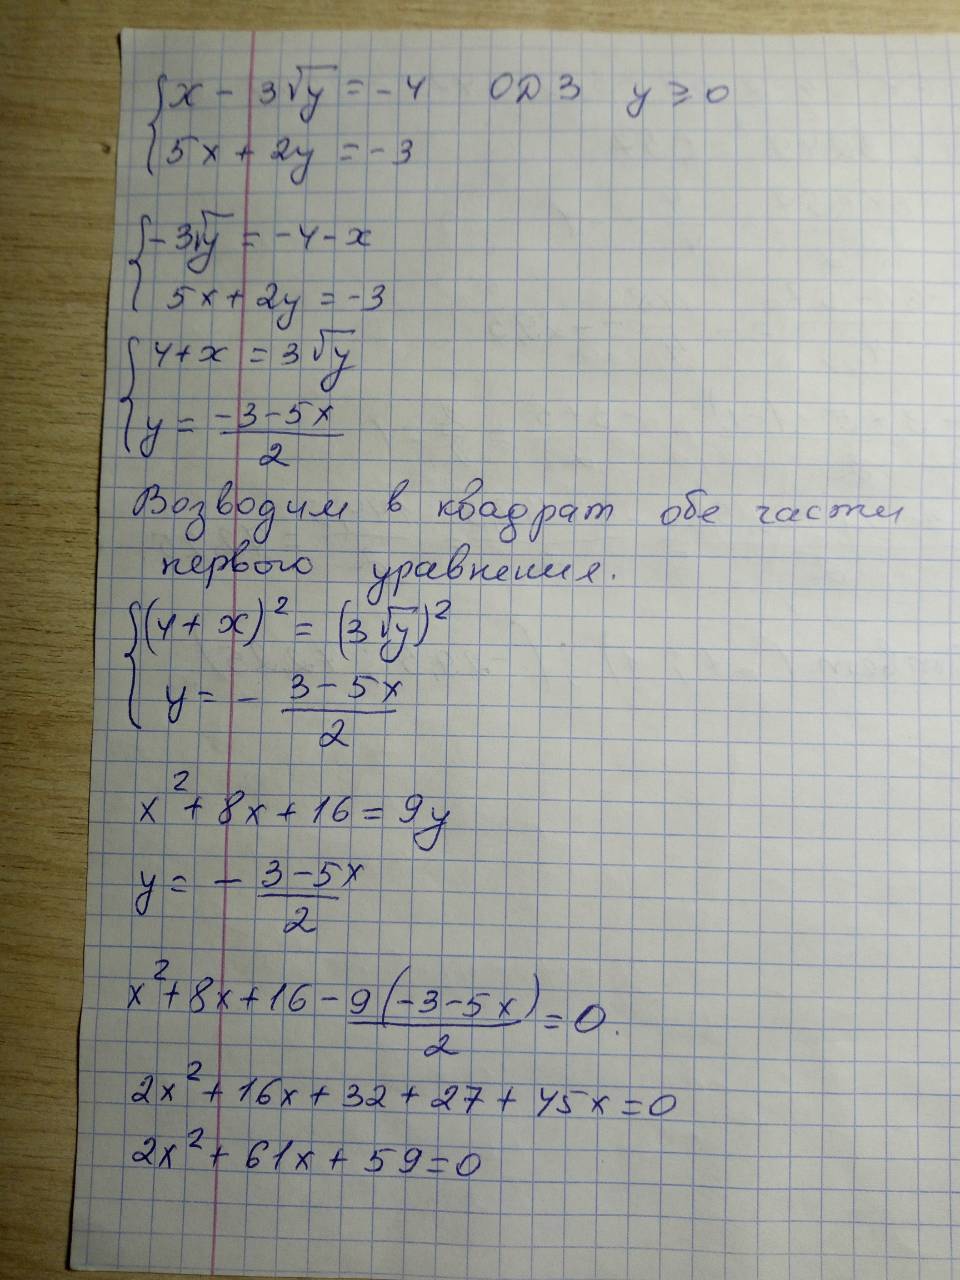 { x - 3√y = -4 ОДЗ y ≥ 0
5x + 2y = -3
{ -3√y = -4 - x
5x + 2y = -3
{ 4 + x = 3√y
y = (-3 - 5x)/2
Возводим в квадрат обе части
первого уравнения.
{ (4 + x)² = (3√y)²
y = - (3 - 5x)/2
x² + 8x + 16 = 9y
y = - (3 - 5x)/2
x² + 8x + 16 - 9(-3 - 5x)/2 = 0.
2x² + 16x + 32 + 27 + 45x = 0
2x² + 61x + 59 = 0